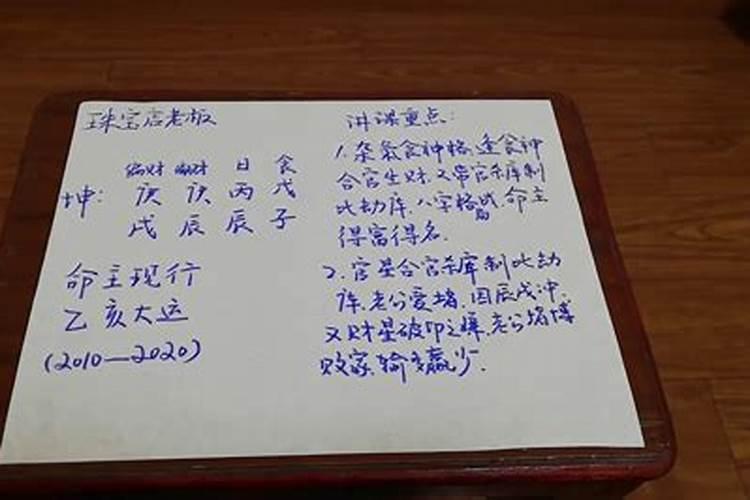 珠宝店老板
偏财 偏财 日 食
坤: 庚 庚 丙 戊
戌 辰 辰 子
命主现行
乙亥大运
(2010—2020)
讲课重点:
1. 杂气食神格,逢食神
合官生财,又带官杀库制
比劫库,八字格局,命主
得富得名.
2. 官星合官杀库制比劫
库,老公爱堵,因辰戌冲,
又财星破印之嫌,老公堵博
败家,输多赢少.